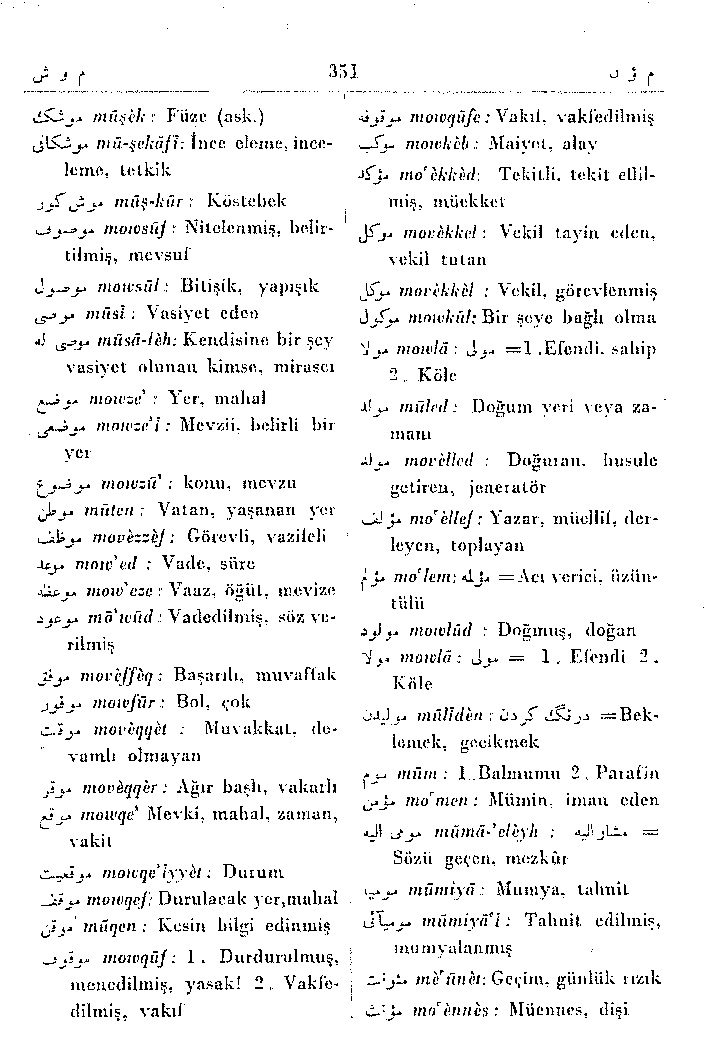 م و ش 351 م ؤ ن
موشك mūşèk : Füze (ask.)
موشكافى mū-şekâfî: İnce eleme, ince-
leme, tetkik
موش كور mūş-kūr : Köstebek
موصوف mowsūf : Nitelenmiş, belir-
tilmiş, mevsuf
موصول mowsūl : Bitişik, yapışık
موصى mūsî : Vasiyet eden
موصى له mūsā-lèh: Kendisine bir şey
vasiyet olunan kimse, mirasçı
موضع mowze' : Yer, mahal
موضعى mowze'î : Mevzii, belirli bir
yer
موضوع mowzū' : konu, mevzu
موطن mūten : Vatan, yaşanan yer
موظف movèzzèf : Görevli, vazifeli
موعد mow'ed : Vade, süre
موعظه mow'eze : Vaaz, öğüt, mevize
موعود mō'wūd : Vadedilmiş, söz ve-
rilmiş
موفق movèffèq : Başarılı, muvaffak
موفور mowfūr : Bol, çok
موقت movèqqèt : Muvakkat, de-
vamlı olmayan
موقر movèqqèr : Ağır başlı, vakarlı
موقع mowqe' Mevki, mahal, zaman,
vakit
موقعيت mowqe'iyyèt : Durum
موقف mowqef: Durulacak yer,mahal
موقن mūqen : Kesin bilgi edinmiş
موقوف mowqūf : 1 . Durdurulmuş,
menedilmiş, yasak! 2 . Vakfe-
dilmiş, vakıf
موقوفه mowqūfe : Vakıf, vakfedilmiş
موكب mowkèb : Maiyet, alay
مؤكد mo'èkkèd: Tekitli, tekit edil-
miş, müekket
موكل movèkkel : Vekil tayin eden,
vekil tutan
موكل movèkkèl : Vekil, görevlenmiş
موكول mowkūl: Bir şeye bağlı olma
مولا mowlā : مولى =1 .Efendi, sahip
2 . Köle
مولد mūled : Doğum yeri veya za-
manı
مولد movèlled : Doğuran, husule
getiren, jeneratör
مؤلف mo'èllef : Yazar, müellif, der-
leyen, toplayan
مؤلم mo'lem: مؤلمه =Acı verici, üzün-
tülü
مولود mowlūd : Doğmuş, doğan
مولا mowlā : مولى = 1 . Efendi 2 .
Köle
موليدن mūlîdèn : درنگ كردن =Bek-
lemek, gecikmek
موم mūm : 1 .Balmumu 2 . Parafin
مؤمن mo'men : Mümin, iman eden
مومى اليه mūmā-'elèyh : مشاراليه =
Sözü geçen, mezkûr
موميا mūmiyā : Mumya, tahnit
موميائى mūmiyā'î : Tahnit edilmiş,
mumyalanmış
مئونت mè'ūnèt: Geçim, günlük rızık
مؤنث mo'ènnès : Müennes, dişi